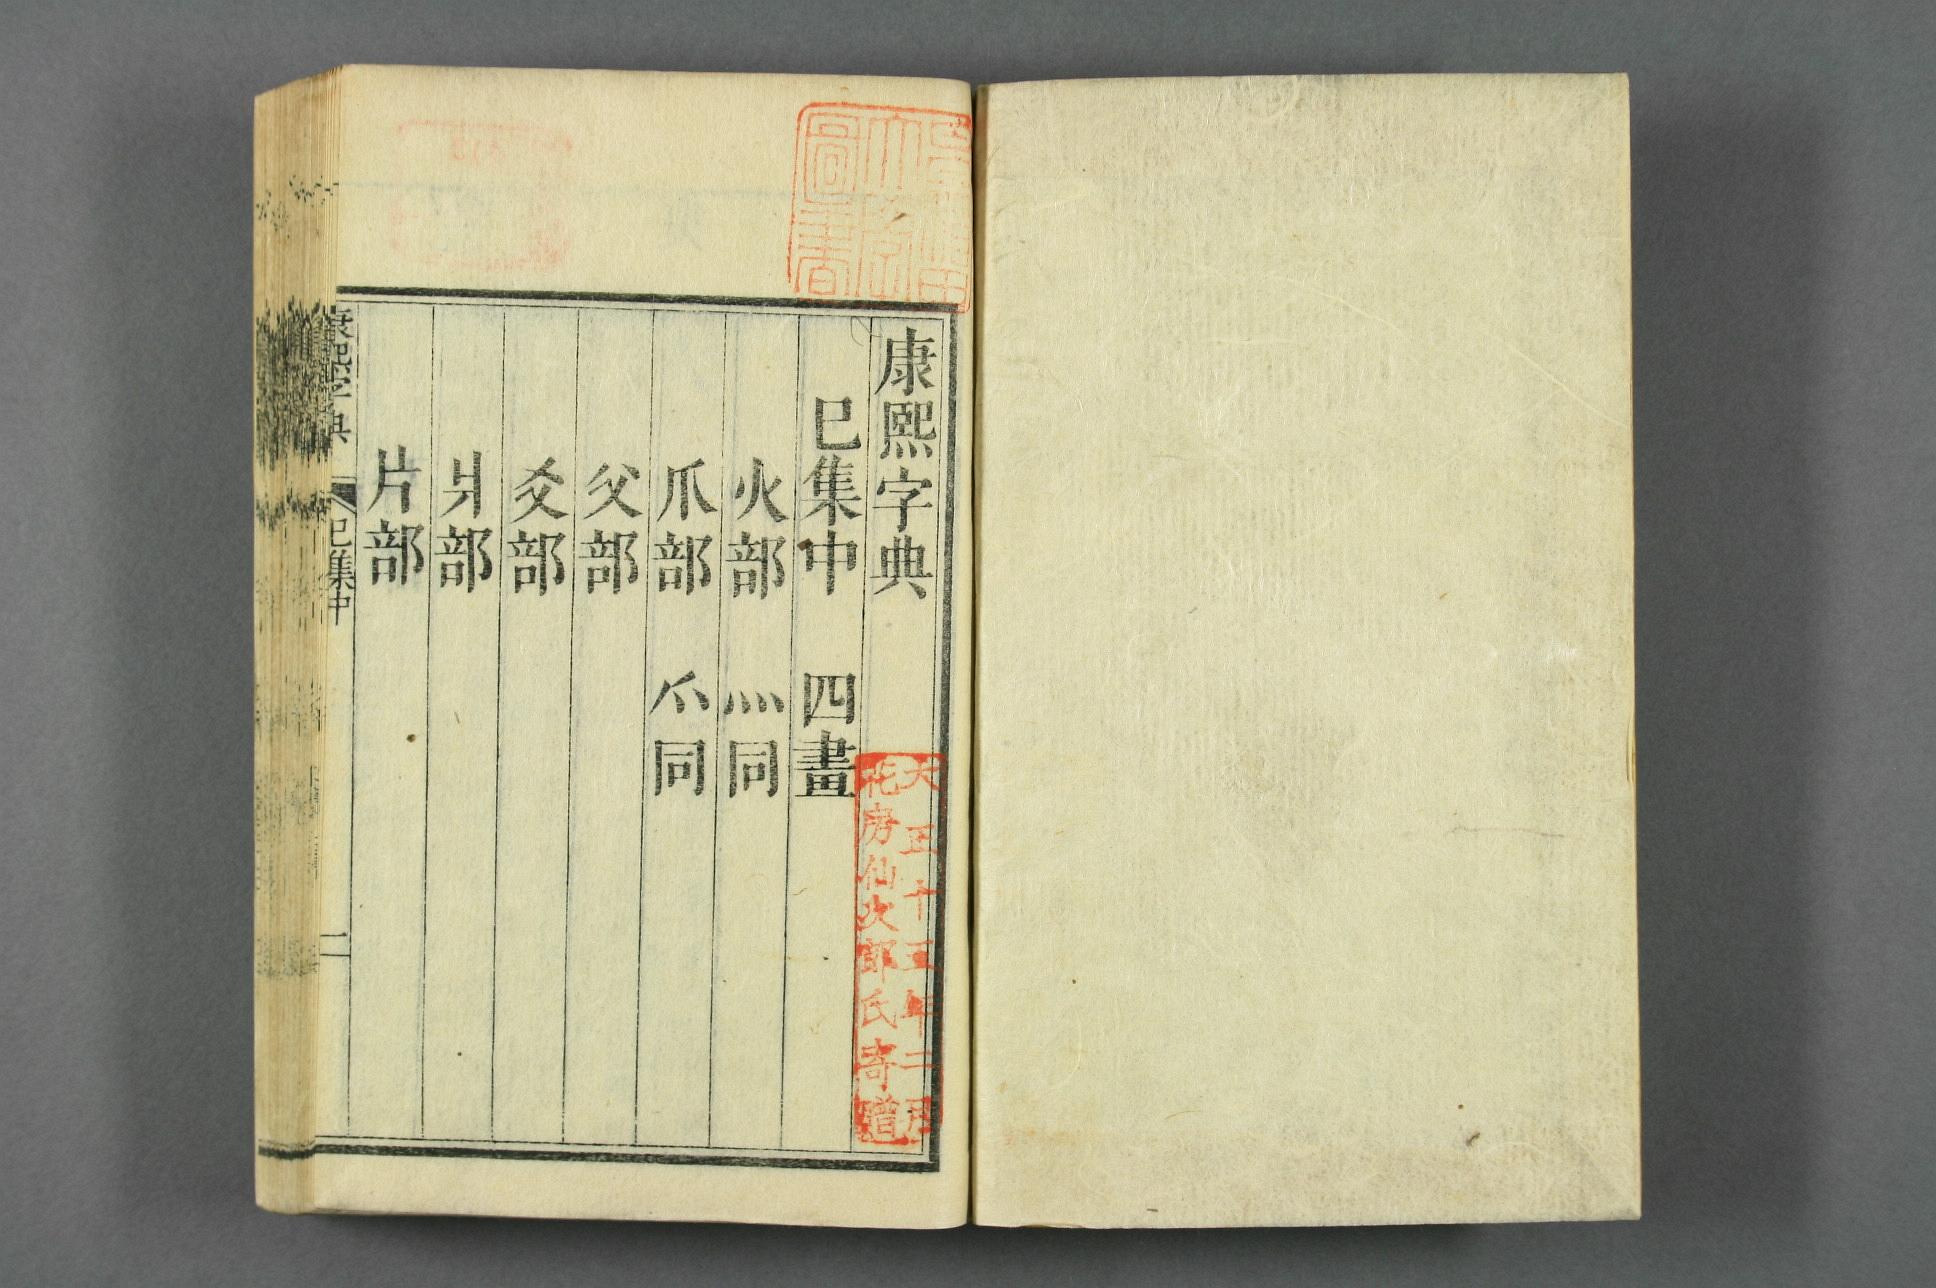 康熙字典
巳集中　四畫
火部　灬同
爪部　爫同
父部
爻部
爿部
片部
康熙字典　巳集中　一
大正十五年二月
花房仙次郎氏寄贈
圖書